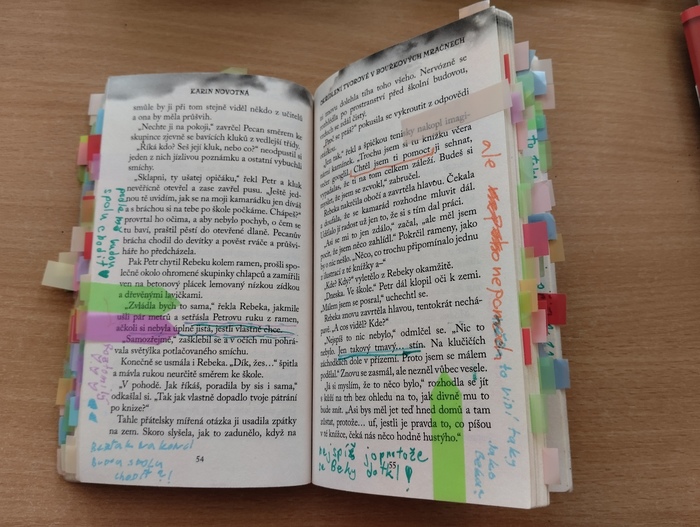 KARIN NOVOTNÁ
smůle by ji při tom stejně viděl někdo z učitelů
a ona by měla průšvih.
„Nechte ji na pokoji,“ zavrčel Pecan směrem ke
skupince zjevně se bavících kluků z vedlejší třídy.
„Říká kdo? Seš její kluk, nebo co?“ neodpustil si
jeden z nich jízlivou poznámku a ostatní vybuchli
smíchy.
„Sklapni, ty ušatej opičáku,“ řekl Petr a kluk
nevěřícně otevřel a zase zavřel pusu. „Ještě jed-
nou tě uvidím, jak se na moji kamarádku jen díváš
a s bráchou si na tebe po škole počkáme. Chápeš?“
provrtal ho očima, a aby nebylo pochyb, o čem se
tu baví, praštil pěstí do otevřené dlaně. Pecanův
brácha chodil do devítky a pověst rváče a průšvi-
háře ho předcházela.
Pak Petr chytil Rebeku kolem ramen, prošli spo-
lečně okolo ohromené skupinky chlapců a zamířili
ven na betonový plácek lemovaný nízkou zídkou
a dřevěnými lavičkami.
„Zvládla bych to sama,“ řekla Rebeka, jakmile
ušli pár metrů a setřásla Petrovu ruku z ramen,
ačkoli si nebyla úplně jistá, jestli vlastně chce.
„Samozřejmě,“ zašklebil se a v očích mu pohrá-
vala světýlka potlačovaného smíchu.
Konečně se usmála i Rebeka. „Dík, žes…“ špitla
a mávla rukou neurčitě směrem ke škole.
„V pohodě. Jak říkáš, poradila by sis i sama,“
odkašlal si. „Tak jak vlastně dopadlo tvoje pátrání
po knize?“
Tahle přátelsky míněná otázka ji usadila zpátky
na zem. Skoro slyšela, jak to zadunělo, když na
54
spolu chodit
TVOROVÉ V BOUŘKOVÝCH MRAČNECH
ni znovu dolehla tíha toho všeho. Nervózně se
rozhlédla po prostranství před školní budovou,
vzduch se zdál čistý.
„Proč se ptáš?“ pokusila se vykroutit z odpovědi
„Jen tak,“ řekl a špičkou tenisky nakopl imagi-
nární kamínek. „Trochu jsem si tu knížku včera
večer googlil. Chtěl jsem ti pomoct ji sehnat,
vypadalas, že ti na tom celkem záleží. Budeš si
myslet, že jsem se zcvokl,“ zabručel.
Rebeka nakrčila obočí a zavrtěla hlavou. Čekala
a doufala, že se kamarád rozhodne mluvit dál.
Udělalo jí radost už jen to, že si s tím dal práci.
„Asi se mi to jen zdálo,“ začal, „ale měl jsem
pocit, že jsem něco zahlídl.“ Pokrčil rameny, jako
by o nic nešlo. „Něco, co trochu připomínalo jednu
z ilustrací z té knížky a–“
„Kde? Kdy?“ vyletělo z Rebeky okamžitě.
„Dneska. Ve škole.“ Petr dál klopil oči k zemi.
„Málem jsem se posral,“ uchechtl se.
Rebeka znovu zavrtěla hlavou, tentokrát nechá-
pavě. „A cos viděl? Kde?“
„Nejspíš to nic nebylo,“ odmlčel se. „Nic to
nebylo. Jen takový tmavý… stín. Na klučičích
záchodkách dole v přízemí. Proto jsem se málem
podělal.“ Znovu se zasmál, ale nezněl vůbec vesele.
„Já si myslím, že to něco bylo,“ rozhodla se jít
s kůží na trh bez ohledu na to, jak divně mu to
bude znít. „Asi bys měl jet teď hned domů a tam
zůstat, protože… uf, jestli je pravda to, co píšou
v té knížce, čeká nás něco hodně hustýho.“
55
ale
nejspíš jo protože
se Beky dotkl